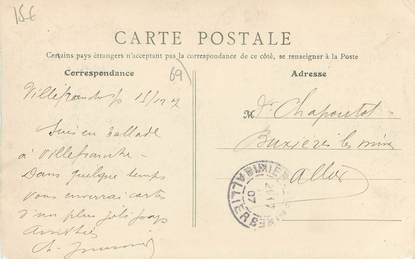 15€
CARTE POSTALE
Certains pays étrangers n'acceptant pas la correspondance de ce côté, se renseigner à la Poste
Correspondance
69
Adresse
Villefranche 15/12 7
Suis en ballade
à Villefranche
Dans quelque temps
vous enverrai carte
d'un plus joli pays
Amitiés
M. Chapoutot
Buxières les mines
Allier
ALLIER
07